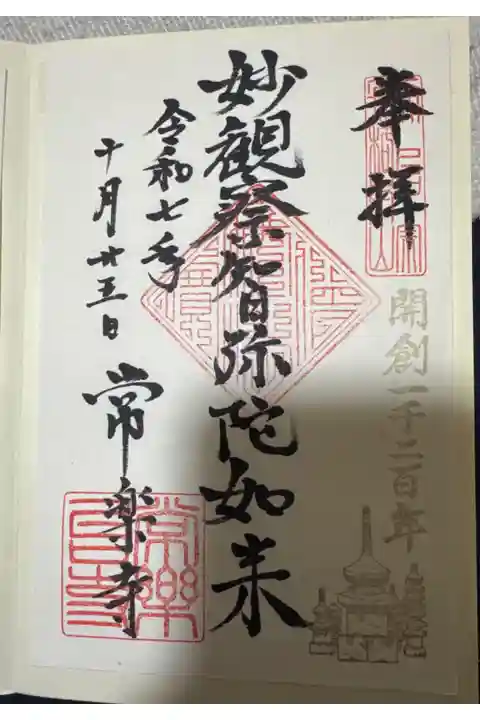 奉拝
開創一千二百年
妙觀察智弥陀如来
令和七年
十月廿三日
常楽寺
常樂